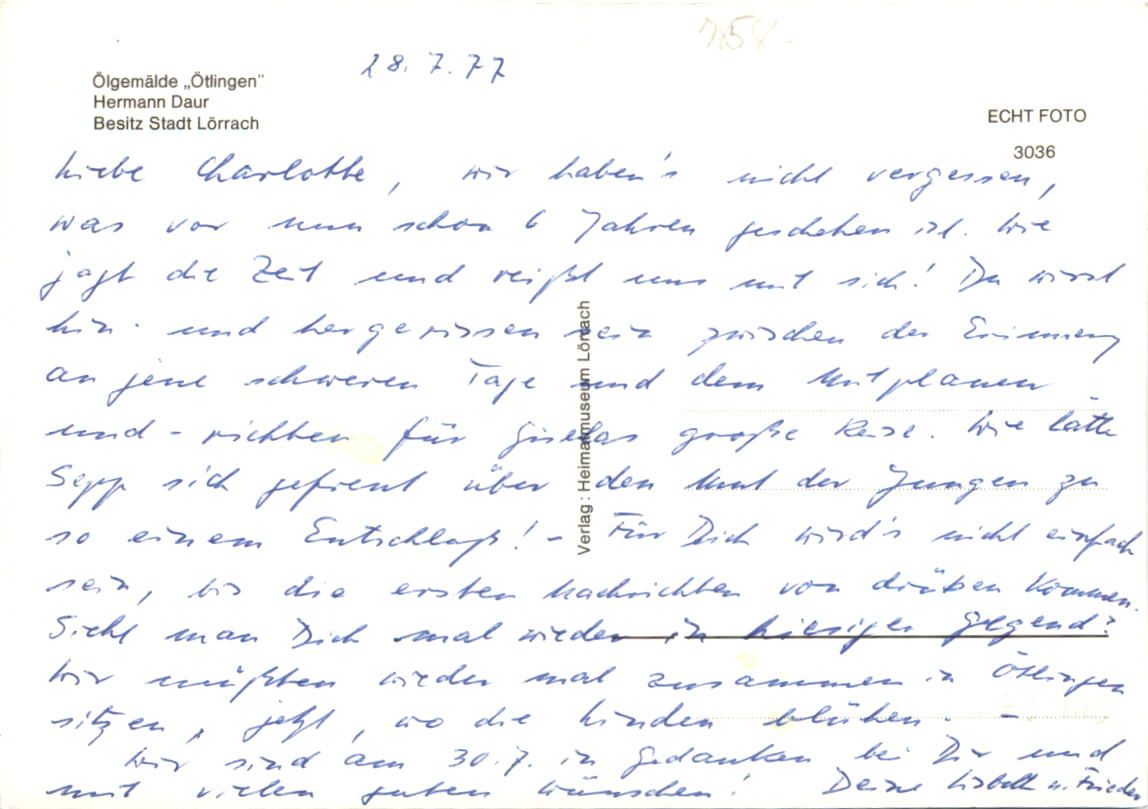 758-
28.7.77
Ölgemälde „Ötlingen"
Hermann Daur
Besitz Stadt Lörrach
ECHT FOTO
3036
Liebe Charlotte, wir haben's nicht vergessen,
was vor nun schon 6 Jahren geschehen ist. Wie
jagt die Zeit und reißt uns mit sich! Du wirst
hin- und hergerissen sein zwischen der Erinnerung
an jene schweren Tage und dem Mitplanen
und -richten für Giselas große Reise. Wie hätte
Sepp sich gefreut über den Mut der Jungen zu
so einem Entschluß! - Für Dich wird's nicht einfach
sein, bis die ersten Nachrichten von drüben kommen.
Sieht man Dich mal wieder in hiesiger Gegend?
Wir müßten wieder mal zusammen in Ötlingen
sitzen, jetzt, wo die Linden blühen. -
Wir sind am 30.7. in Gedanken bei Dir und
mit vielen guten Wünschen! Deine Lisbeth u. Frieder
Verlag: Heimatmuseum Lörrach